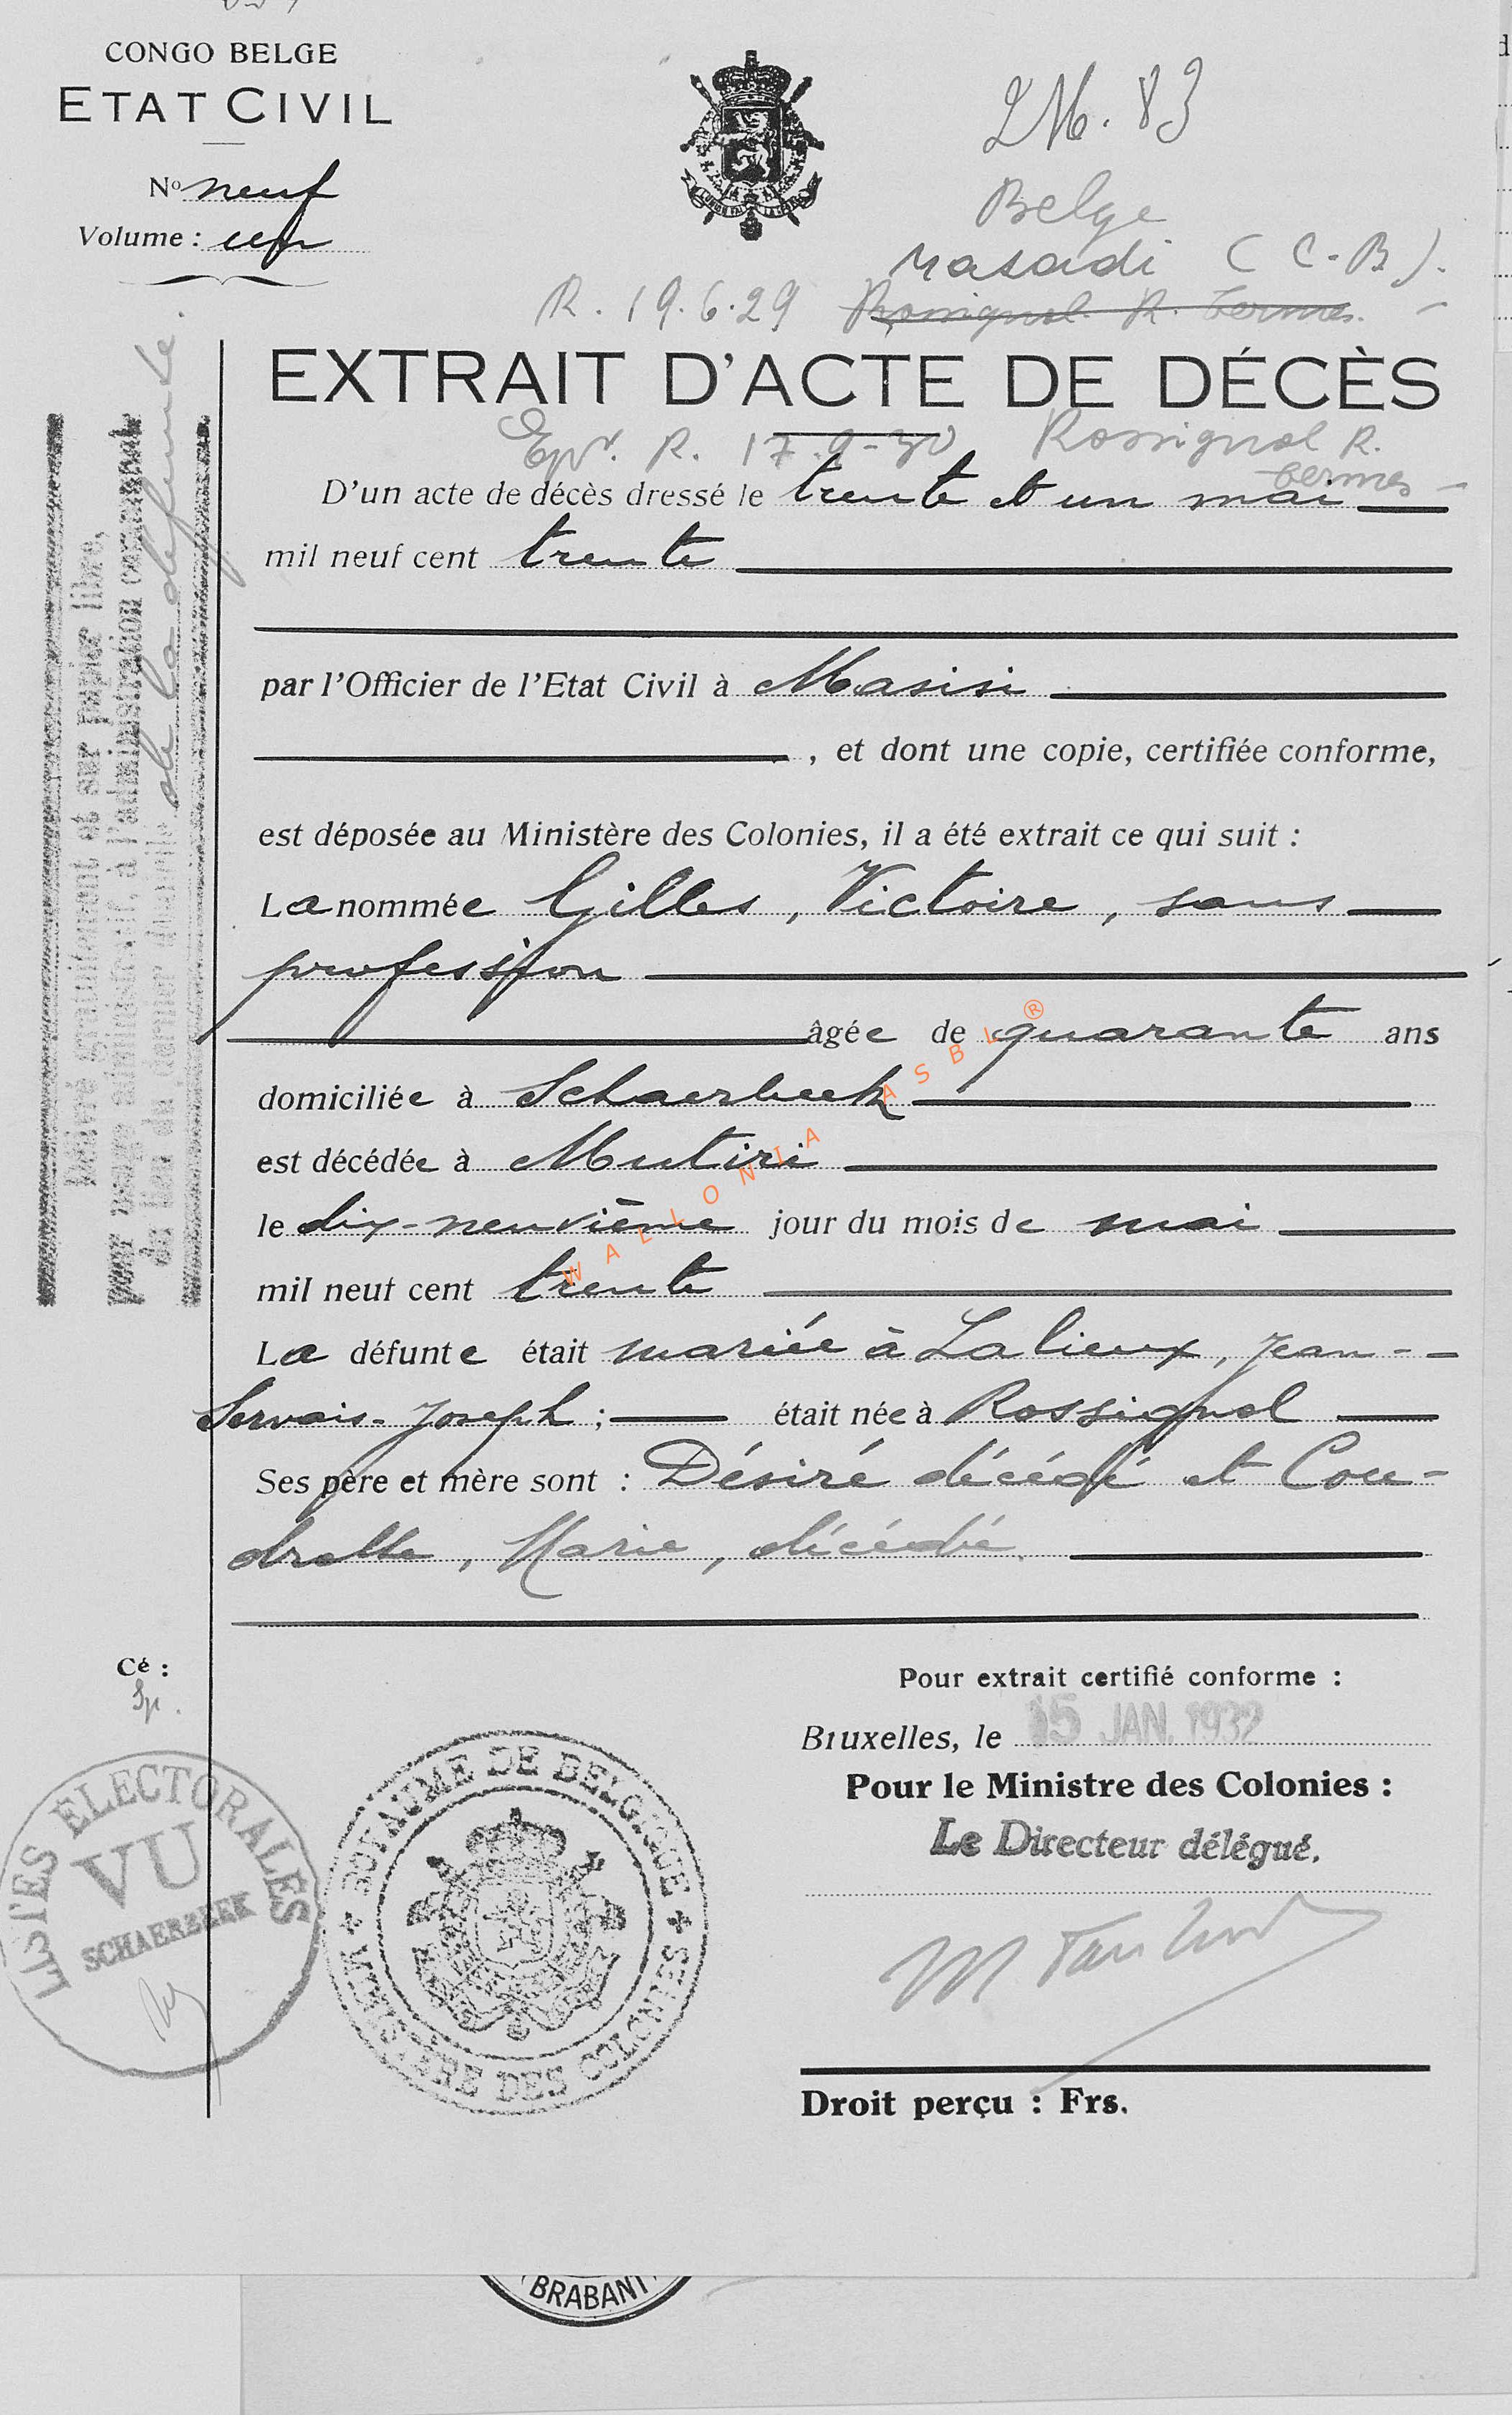 CONGO BELGE
ETAT CIVIL
No neuf
Volume : un
2M. 83
Belge
Masadi (C.B).
R. 19.6.29 Rossignol R. Termes. -
EXTRAIT D'ACTE DE DÉCÈS
R. 17.9-30 Rossignol R.
Termes -
D'un acte de décès dressé le trente et un mai
mil neuf cent trente
par l'Officier de l'Etat Civil à Masisi
, et dont une copie, certifiée conforme,
est déposée au Ministère des Colonies, il a été extrait ce qui suit :
La nommée Gilles, Victoire, sans
profession
âgée de quarante ans
domiciliée à Schaerbeek
est décédée à Mutiri
le dix-neuvième jour du mois de mai
mil neuf cent trente
La défunte était mariée à Lalieux, Jean-
Servais-Joseph ; était née à Rossignol
Ses père et mère sont : Désiré décédé et Cou-
drotte, Marie, décédée.
Délivré gratuitement et sur papier libre,
pour usage administratif, à l'administration communale
du lieu du dernier domicile de la défunte.
WALLONIA ASBL ®
Cé :
Pour extrait certifié conforme :
Bruxelles, le 15 JAN. 1932
Pour le Ministre des Colonies :
Le Directeur délégué.
LISTES ÉLECTORALES
VU
SCHAERBEEK
ROYAUME DE BELGIQUE
MINISTÈRE DES COLONIES
Droit perçu : Frs.
BRABANT